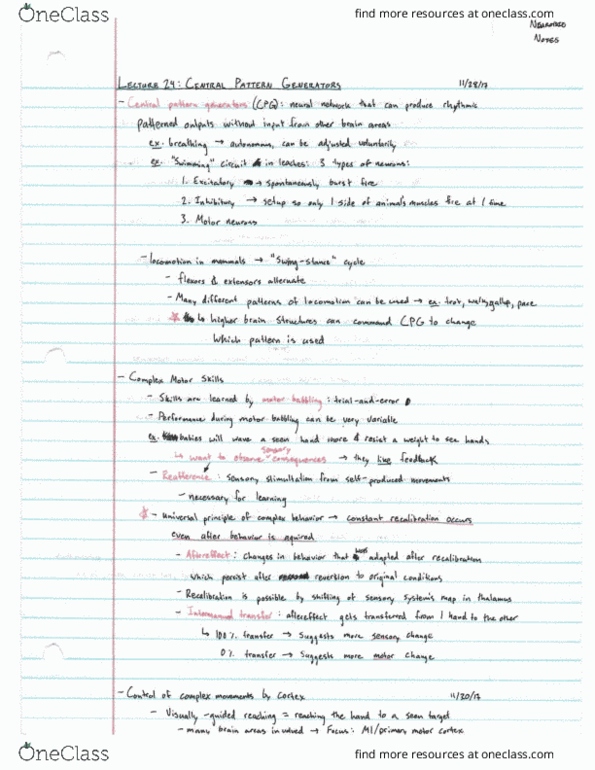 OneClass
find more resources at oneclass.com
Neuro
Notes
Lecture 24: Central Pattern Generators 11/28/17
- Central pattern generators (CPG): neural network that can produce rhythmic
patterned outputs without input from other brain areas
ex. breathing → autonomous, can be adjusted voluntarily
ex. "Swimming" circuit in leaches: 3 types of neurons:
1. Excitatory → spontaneously burst fire
2. Inhibitory → setup so only 1 side of animal's muscles fire at 1 time
3. Motor neurons
- locomotion in mammals → "Swing-stance" cycle
- flexors & extensors alternate
- Many different patterns of locomotion can be used → ex. trot, walk, gallop, pace
☆ ↳ higher brain structures can command CPG to change
which pattern is used
- Complex Motor Skills
- Skills are learned by motor babbling: trial-and-error
- Performance during motor babbling can be very variable
ex. babies will wave a seen hand more & resist a weight to see hands
↳ want to observe sensory consequences → they like feedback
- Reafference: sensory stimultation from self-produced movements
- necessary for learning
☆ - Universal principle of complex behavior → constant recalibration occurs
even after behavior is aquired
- Aftereffect: changes in behavior that was adapted after recalibration
which persist after reversion to original conditions
- Recalibration is possible by shifting of sensory system's map in thalamus
- Intermanual transfer: aftereffect gets transferred from 1 hand to the other
↳ 100% transfer → Suggests more sensory change
0% transfer → Suggests more motor change
- Control of complex movements by cortex 11/30/17
- Visually-guided reaching = reaching the hand to a seen target
- many brain areas involved → Focus: M1/primary motor cortex
OneClass
find more resources at oneclass.com